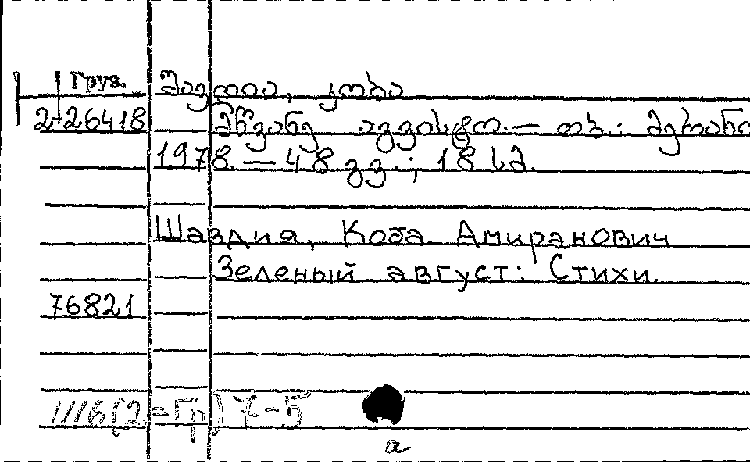 Груз.
შავდია, კობა
2-26418 მწვანე აგვისტო. — თბ.: მერანი
1978. — 48 გვ.; 18 სმ.
Шавдия, Коба Амиранович
Зеленый август: Стихи.
76821
Ш6(2=Гр)7-5
а